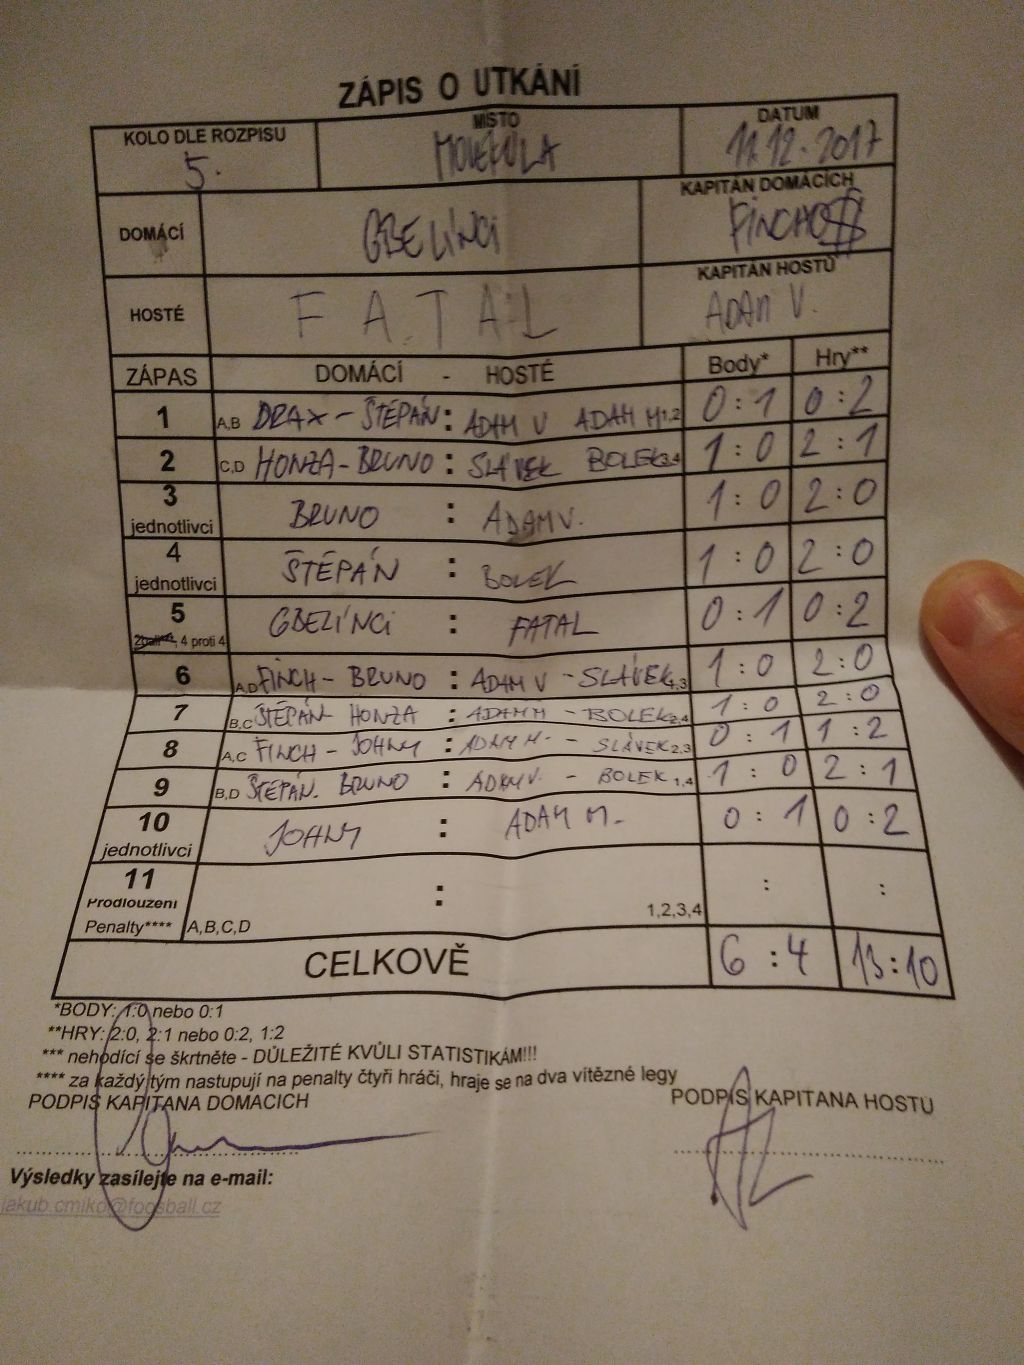 ZÁPIS O UTKÁNÍ
KOLO DLE ROZPISU MÍSTO DATUM
5. MOLEKULA 11.12.2017
DOMÁCÍ GBELÍNCI KAPITÁN DOMÁCÍCH
HOSTÉ FATAL KAPITÁN HOSTŮ ADAM V.
ZÁPAS DOMÁCÍ - HOSTÉ Body* Hry**
1 A,B DRAX - ŠTĚPÁN : ADAM V ADAM M 1,2 0:1 0:2
2 C,D HONZA - BRUNO : SLÁVEK BOLEK 3,4 1:0 2:1
3 jednotlivci BRUNO : ADAM V. 1:0 2:0
4 jednotlivci ŠTĚPÁN : BOLEK 1:0 2:0
5 4 proti 4 GBELÍNCI : FATAL 0:1 0:2
6 A,D FINCH - BRUNO : ADAM V - SLÁVEK 1,3 1:0 2:0
7 B,C ŠTĚPÁN HONZA : ADAM M - BOLEK 2,4 1:0 2:0
8 A,C FINCH - JOHNY : ADAM M. - SLÁVEK 2,3 0:1 1:2
9 B,D ŠTĚPÁN. BRUNO : ADAM V. - BOLEK 1,4 1:0 2:1
10 jednotlivci JOHNY : ADAM M. 0:1 0:2
11 Prodloužení : : :
Penalty**** A,B,C,D 1,2,3,4
CELKOVĚ 6:4 13:10
*BODY: 1:0 nebo 0:1
**HRY: 2:0, 2:1 nebo 0:2, 1:2
*** nehodící se škrtněte - DŮLEŽITÉ KVŮLI STATISTIKÁM!!!
**** za každý tým nastupují na penalty čtyři hráči, hraje se na dva vítězné legy
PODPIS KAPITANA DOMACICH PODPIS KAPITANA HOSTU
Výsledky zasílejte na e-mail: